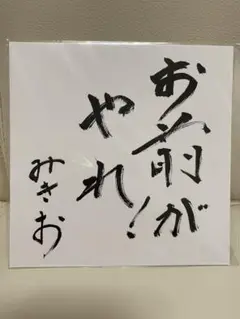 お前が
やれ!
みきお